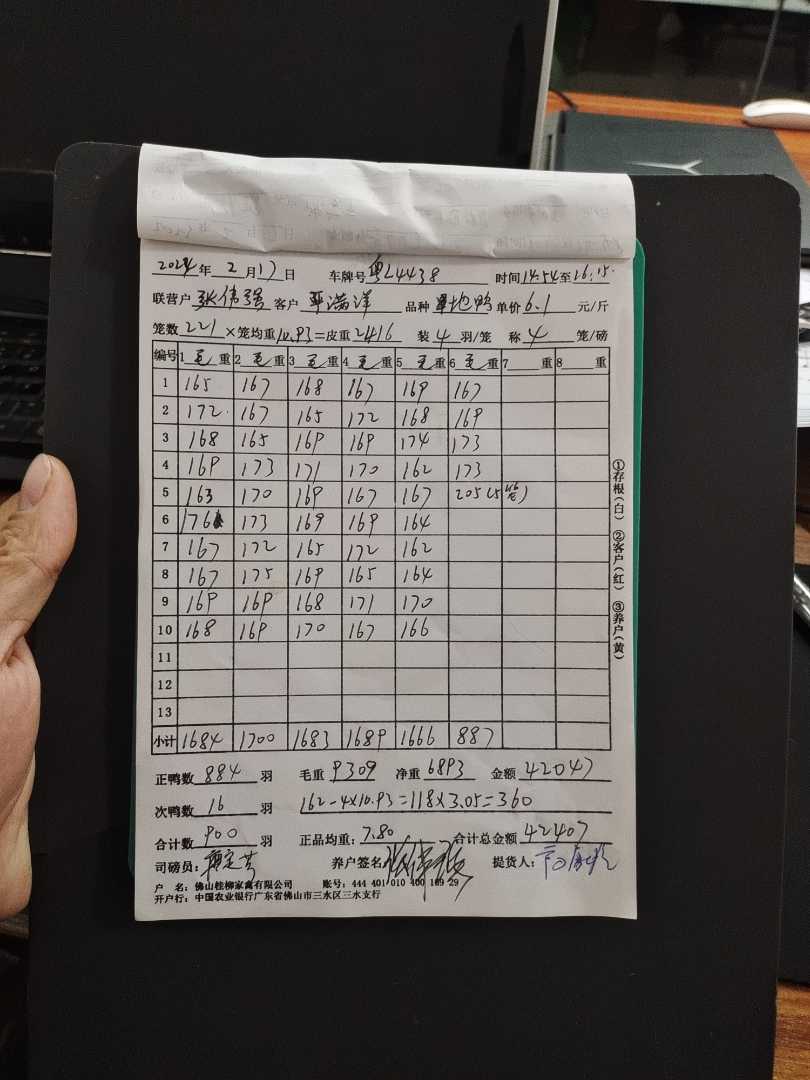 2024年 2月17日 车牌号 粤L4438 时间14:54至16:15.
联营户 张伟强 客户 平满洋 品种 旱地鸭 单价6.1 元/斤
笼数 221 ×笼均重10.93=皮重2416 装 4 羽/笼 称 4 笼/磅
编号 1 毛 重 2 毛 重 3 毛 重 4 毛 重 5 毛 重 6 毛 重 7 重 8 重
1 165 167 168 167 169 167
2 172 167 165 172 168 169
3 168 165 169 169 174 173
4 169 173 171 170 162 173
5 163 170 169 167 167 205(5笼)
6 176 173 169 169 164
7 167 172 165 172 162
8 167 175 169 165 164
9 169 169 168 171 170
10 168 169 170 167 166
11
12
13
小计 1684 1700 1683 1689 1666 887
正鸭数 884 羽 毛重 9309 净重 6893 金额 42047
次鸭数 16 羽 162-4×10.93=118×3.05=360
合计数 900 羽 正品均重: 7.80 合计总金额 42407
司磅员: 养户签名 张伟强 提货人:
户 名: 佛山桂柳家禽有限公司 账号: 444 401 010 400 169 29
开户行: 中国农业银行广东省佛山市三水区三水支行
①存根(白) ②客户(红) ③养户(黄)